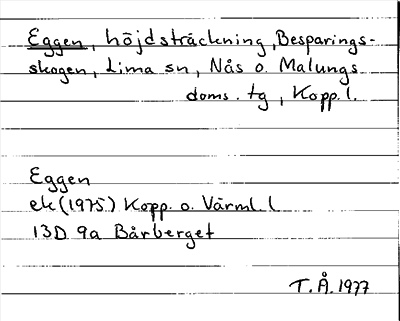 Eggen, höjdsträckning, Besparings-
skogen, Lima sn, Nås o. Malungs
doms. tg, Kopp. l.
Eggen
ek (1975) Kopp. o. Värml. l
13D 9a Bårberget
T.Å. 1977